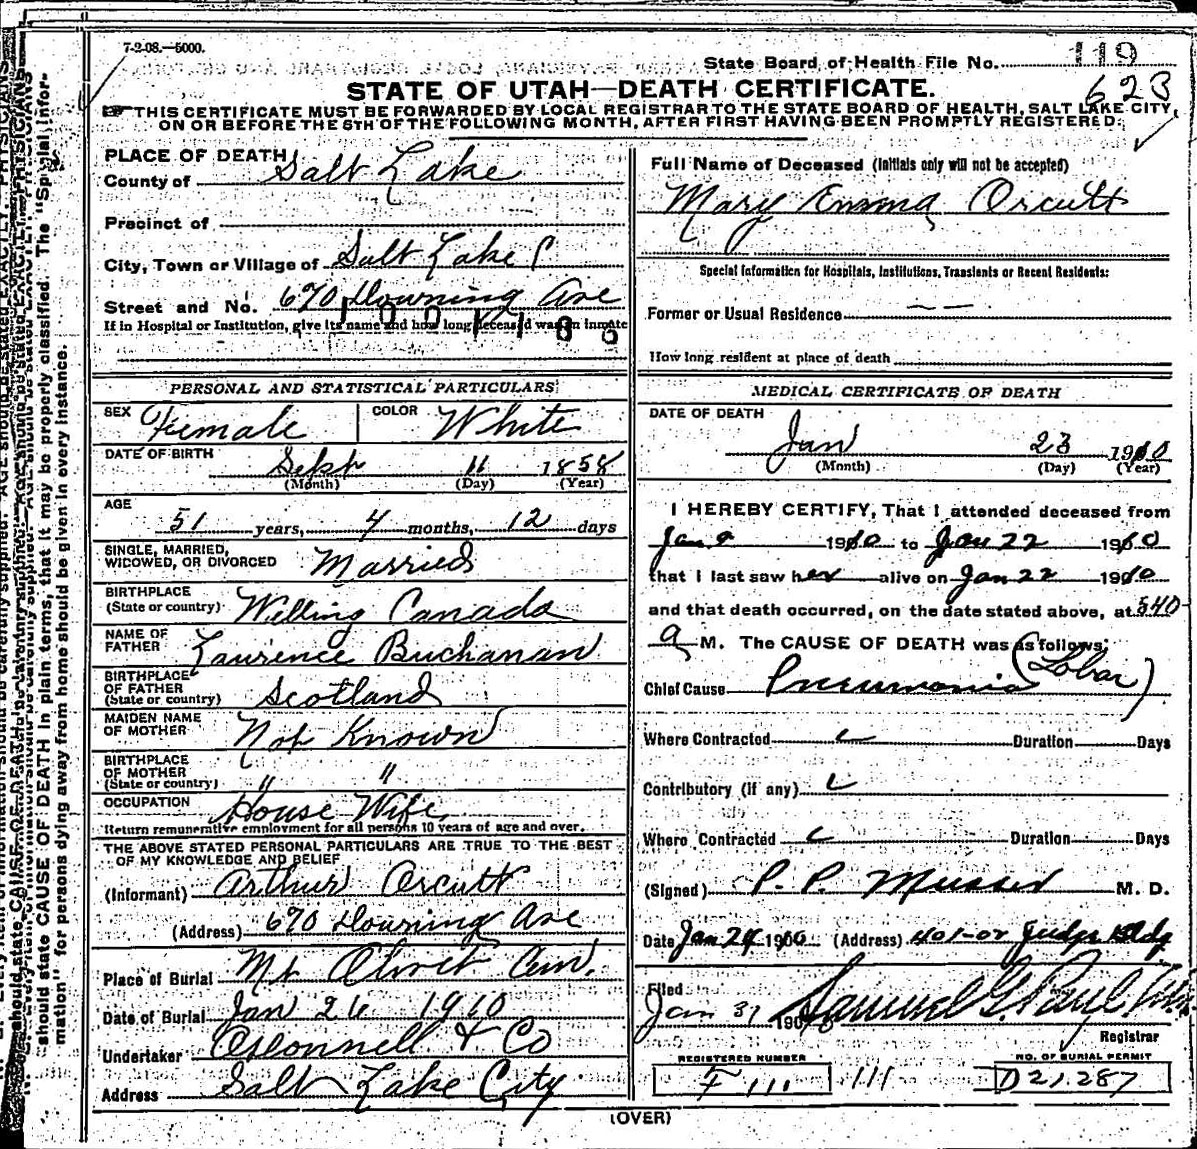 7-2-08.—5000.
State Board of Health File No. 119
623
STATE OF UTAH—DEATH CERTIFICATE.
THIS CERTIFICATE MUST BE FORWARDED BY LOCAL REGISTRAR TO THE STATE BOARD OF HEALTH, SALT LAKE CITY,
ON OR BEFORE THE 5TH OF THE FOLLOWING MONTH, AFTER FIRST HAVING BEEN PROMPTLY REGISTERED.
PLACE OF DEATH
County of Salt Lake
Precinct of
City, Town or Village of Salt Lake C
Street and No. 670 Downing Ave
If in Hospital or Institution, give its name and how long deceased was an inmate
PERSONAL AND STATISTICAL PARTICULARS
SEX Female COLOR White
DATE OF BIRTH Sept 11 1858
(Month) (Day) (Year)
AGE
51 years, 4 months, 12 days
SINGLE, MARRIED,
WIDOWED, OR DIVORCED Married
BIRTHPLACE
(State or country) Welling Canada
NAME OF
FATHER Laurence Buchanan
BIRTHPLACE
OF FATHER
(State or country) Scotland
MAIDEN NAME
OF MOTHER Not Known
BIRTHPLACE
OF MOTHER
(State or country) " "
OCCUPATION House Wife
Return remunerative employment for all persons 10 years of age and over.
THE ABOVE STATED PERSONAL PARTICULARS ARE TRUE TO THE BEST
OF MY KNOWLEDGE AND BELIEF
(Informant) Arthur Orcutt
(Address) 670 Downing Ave
Place of Burial Mt Olivet Cem.
Date of Burial Jan 26 1910
Undertaker O'Connell & Co
Address Salt Lake City
Full Name of Deceased (Initials only will not be accepted)
Mary Emma Orcutt
Special Information for Hospitals, Institutions, Transients or Recent Residents:
Former or Usual Residence — —
How long resident at place of death
MEDICAL CERTIFICATE OF DEATH
DATE OF DEATH
Jan 23 1910
(Month) (Day) (Year)
I HEREBY CERTIFY, That I attended deceased from
Jan 1910 to Jan 22 1910
that I last saw her alive on Jan 22 1910
and that death occurred, on the date stated above, at 540
a M. The CAUSE OF DEATH was as follows:
Chief Cause Pneumonia (Lobar)
Where Contracted Duration Days
Contributory (if any)
Where Contracted Duration Days
(Signed) P. P. Musser M. D.
Date Jan 24 1910 (Address) 401-02 Judge Bldg
Filed
Jan 31 190 Samuel G. Paul
Registrar
REGISTERED NUMBER
F 111 111
NO. OF BURIAL PERMIT
D21287
(OVER)
should state CAUSE OF DEATH in plain terms, that it may be properly classified. The "Special Infor-
mation" for persons dying away from home should be given in every instance.